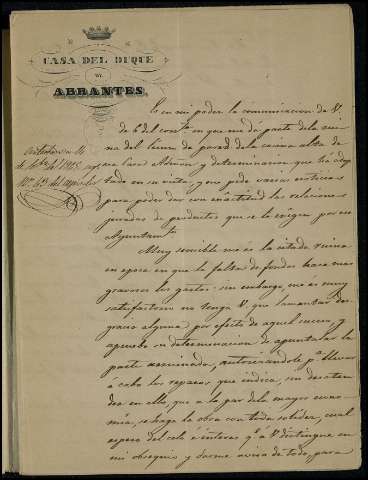 CASA DEL DUQUE
DE
ABRANTES.
Es en mi poder la comunicacion de V.
de 6 del corr.te en que me da parte de la rui-
na del lienzo de pared de la cocina alta de
esa Casa y determinacion que ha adop-
tado en su vista, y me pide varias noticias
para poder dar con exactitud las relaciones
juradas de productos que se le exigen por ese
Ayuntam.to
Muy sensible me es la citada ruina
en epoca en que la falta de fondos hace mas
gravosos los gastos: sin embargo, me es muy
satisfactorio no tenga V. que lamentar des-
gracia alguna por efecto de aquel suceso, y
apruebo su determinacion de apuntalar la
parte arruinada, autorizandole p.a llevar
á cabo los reparos que indica, sin desaten-
der en ello, que a la par de la mayor econo-
mia, se haga la obra con toda solidez, cual
espero del celo é interes q.e á V. distingue en
mi obsequio y darme aviso de todo, para
de 1845